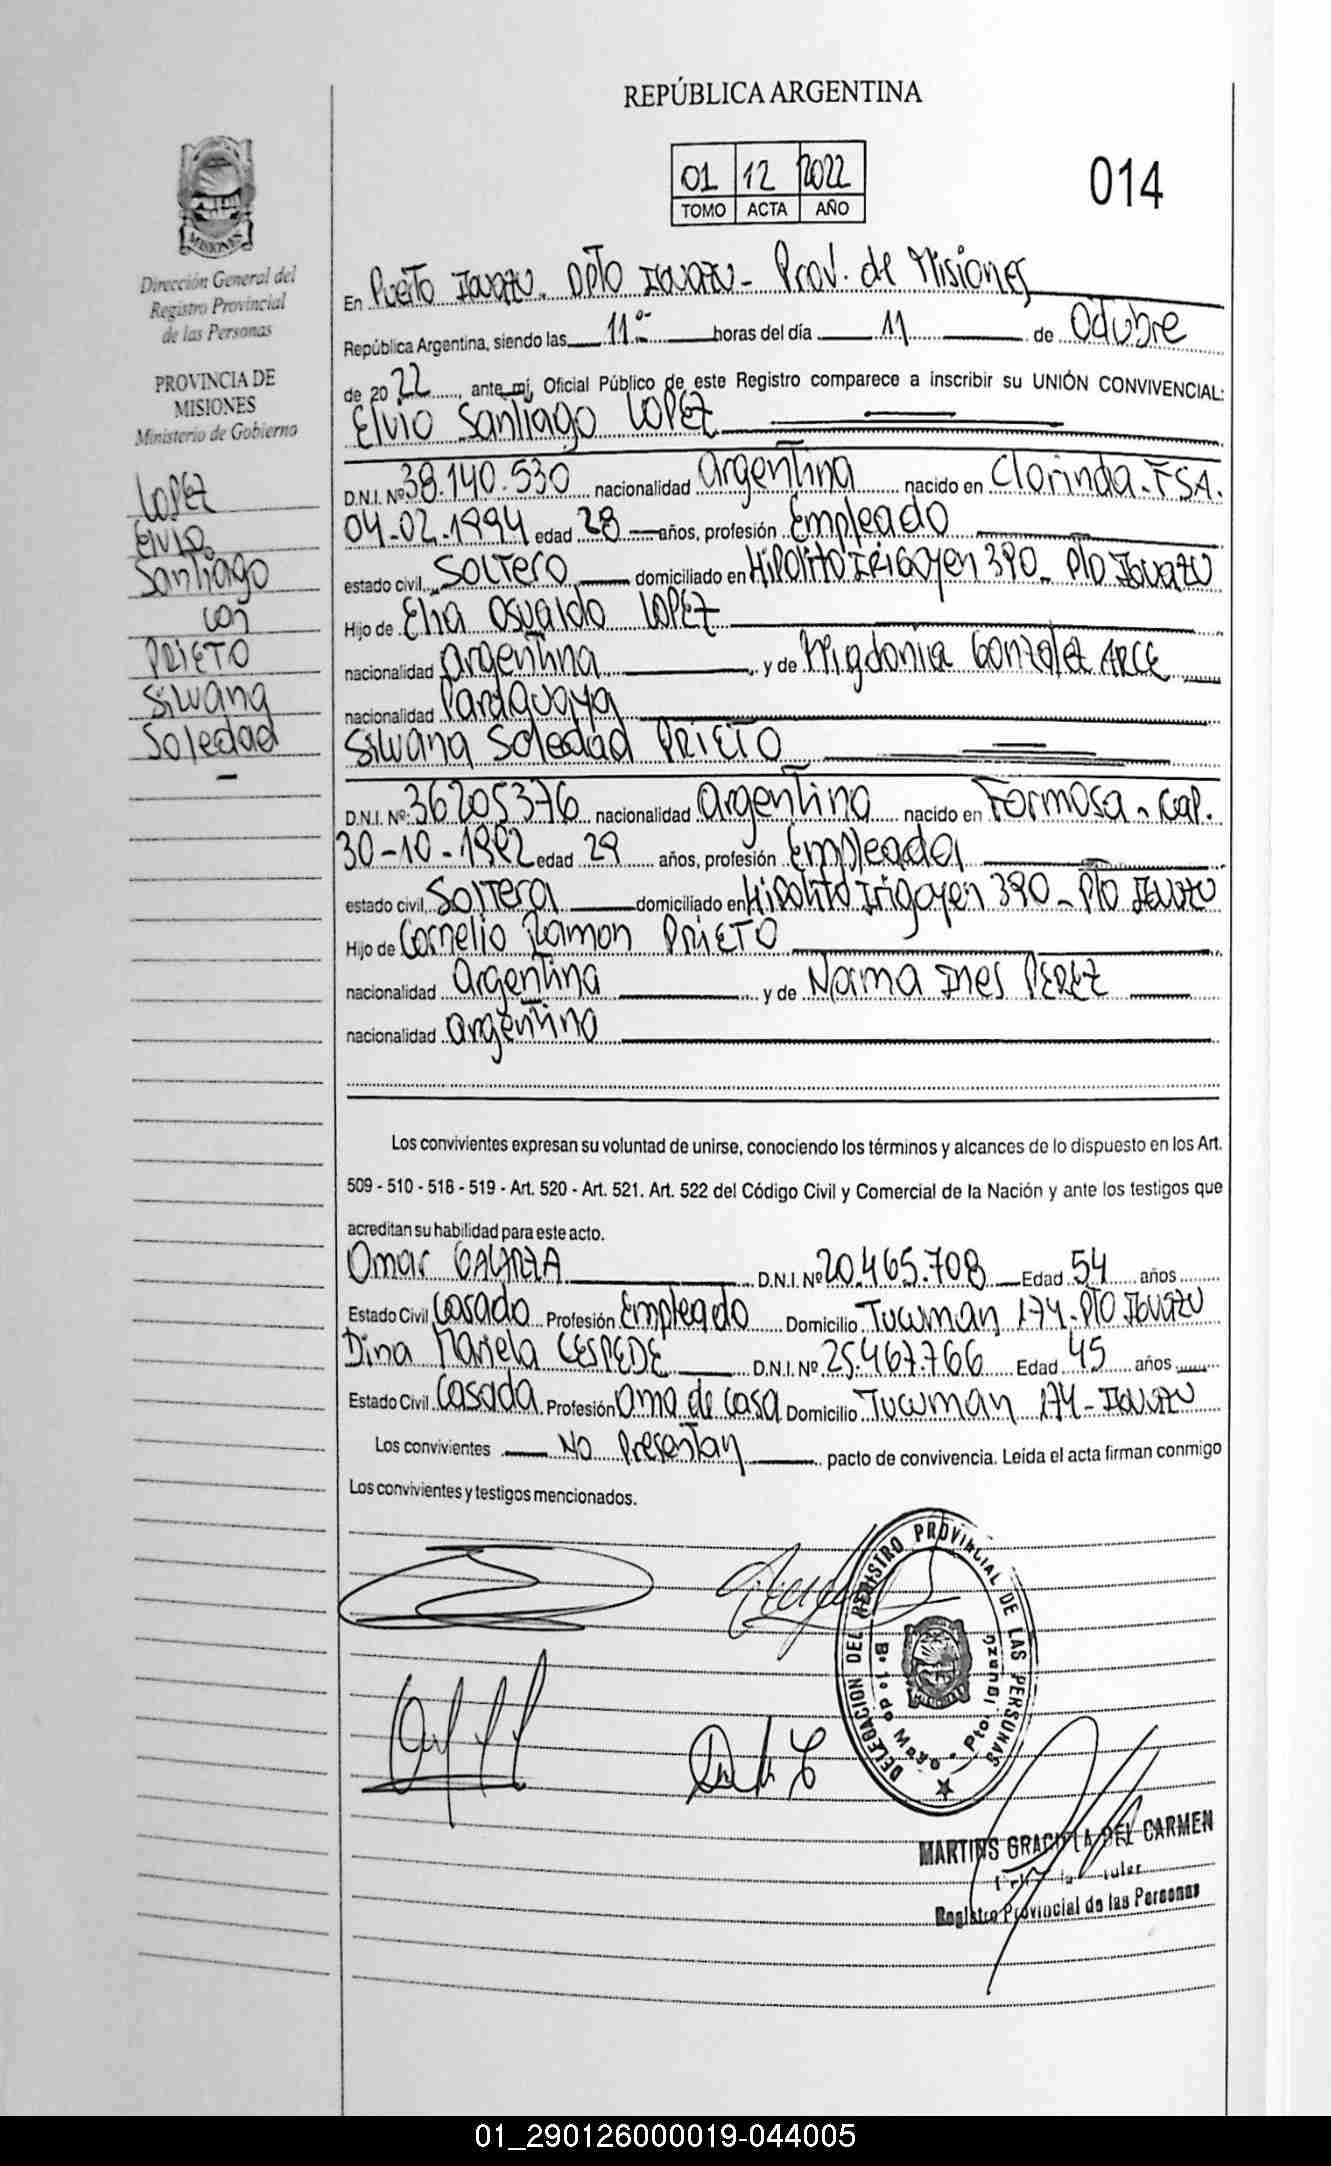 REPÚBLICA ARGENTINA
01 12 2022
TOMO ACTA AÑO
014
MISIONES
Dirección General del
Registro Provincial
de las Personas
PROVINCIA DE
MISIONES
Ministerio de Gobierno
LOPEZ
Elvio
Santiago
con
PRIETO
Silvana
Soledad
En Puerto Iguazu. DPTO IGUAZU - Prov. de Misiones
República Argentina, siendo las 11 horas del día 11 de Octubre
de 2022, ante mí, Oficial Público de este Registro comparece a inscribir su UNIÓN CONVIVENCIAL:
Elvio Santiago LOPEZ
D.N.I. Nº 38.140.530 nacionalidad Argentina nacido en Clorinda - FSA.
04-02-1994 edad 28 años, profesión Empleado
estado civil Soltero domiciliado en Hipolito IRIGoyen 390 - PTO IGUAZU
Hijo de Osvaldo LOPEZ
nacionalidad Argentina y de Migdonia Gonzalez ARCE
nacionalidad Paraguaya
Silvana Soledad PRIETO
D.N.I. Nº 36205376 nacionalidad Argentina nacido en Formosa - Cap.
30-10-1992 edad 29 años, profesión Empleada
estado civil Soltera domiciliado en Hipolito Irigoyen 390 - PTO IGUAZU
Hijo de Cornelio Ramon PRIETO
nacionalidad Argentina y de Norma Ines PEREZ
nacionalidad Argentina
Los convivientes expresan su voluntad de unirse, conociendo los términos y alcances de lo dispuesto en los Art.
509 - 510 - 518 - 519 - Art. 520 - Art. 521. Art. 522 del Código Civil y Comercial de la Nación y ante los testigos que
acreditan su habilidad para este acto.
Omar D.N.I. Nº 20.465.708 Edad 54 años
Estado Civil Casado Profesión Empleado Domicilio Tucuman 174 - PTO IGUAZU
Dina Mariela CESPEDE D.N.I. Nº 25.467.766 Edad 45 años
Estado Civil Casada Profesión Ama de casa Domicilio Tucuman 174 - IGUAZU
Los convivientes No Presentan pacto de convivencia. Leída el acta firman conmigo
Los convivientes y testigos mencionados.
DELEGACION DEL REGISTRO PROVINCIAL DE LAS PERSONAS
Bº 1º de Mayo - Pto. Iguazú
MARTINS GRACIELA DEL CARMEN
Registro Provincial de las Personas
01_290126000019-044005